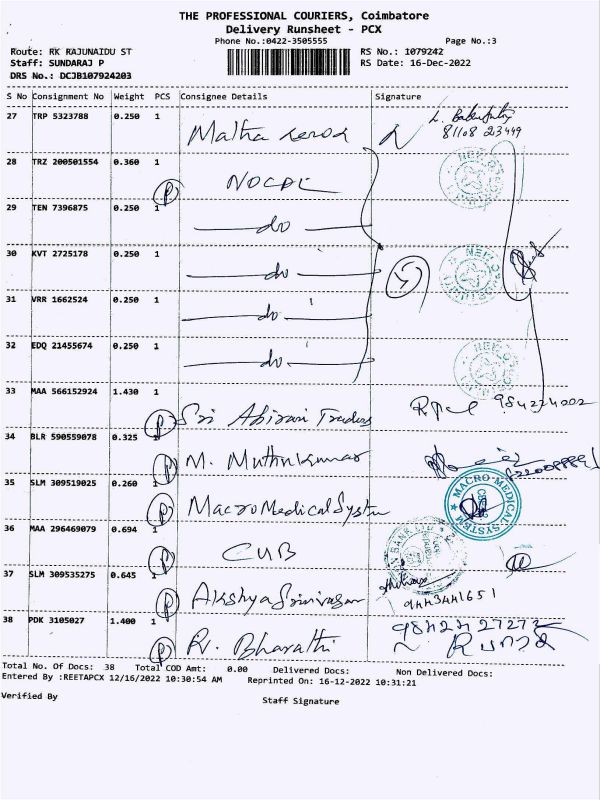 THE PROFESSIONAL COURIERS, Coimbatore
Delivery Runsheet - PCX
Phone No.:0422-3505555
Page No.:3
Route: RK RAJUNAIDU ST
RS No.: 1079242
Staff: SUNDARAJ P
RS Date: 16-Dec-2022
DRS No.: DCJB107924203
S No Consignment No Weight PCS Consignee Details Signature
27 TRP 5323788 0.250 1 Matha
81108 23449
28 TRZ 200501554 0.360 1 NOCPL
P
29 TEN 7396875 0.250 1 do
30 KVT 2725178 0.250 1 do
5
31 VRR 1662524 0.250 1 do
32 EDQ 21455674 0.250 1 do
33 MAA 566152924 1.430 1 Sri Abirami Traders
P
34 BLR 590559078 0.325 1 M. Muthukumar
P
35 SLM 309519025 0.260 1 Macro Medical System
P
MACRO MEDICAL SYSTEM
36 MAA 296469079 0.694 1 CUB
P
37 SLM 309535275 0.645 1 Akshya Srinivasan
P
9443441651
38 PDK 3105027 1.400 1 R. Bharathi
P
Total No. Of Docs: 38 Total COD Amt: 0.00 Delivered Docs: Non Delivered Docs:
Entered By :REETAPCX 12/16/2022 10:30:54 AM Reprinted On: 16-12-2022 10:31:21
Verified By
Staff Signature